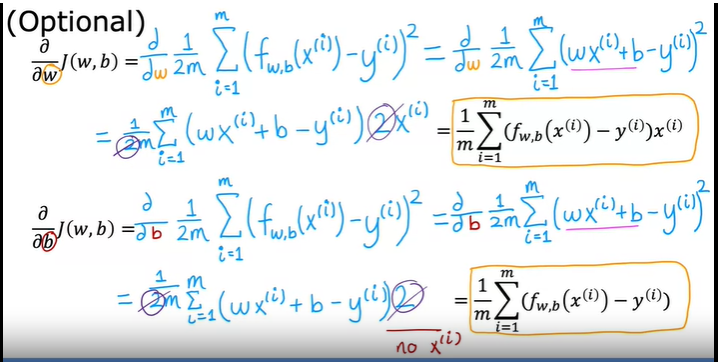 (Optional)
∂/∂w J(w,b) = d/dw 1/2m Σ_{i=1}^{m} (f_{w,b}(x^{(i)}) - y^{(i)})² = d/dw 1/2m Σ_{i=1}^{m} (wx^{(i)} + b - y^{(i)})²
= 1/2m Σ_{i=1}^{m} (wx^{(i)} + b - y^{(i)}) 2x^{(i)} = 1/m Σ_{i=1}^{m} (f_{w,b}(x^{(i)}) − y^{(i)})x^{(i)}
∂/∂b J(w,b) = d/db 1/2m Σ_{i=1}^{m} (f_{w,b}(x^{(i)}) - y^{(i)})² = d/db 1/2m Σ_{i=1}^{m} (wx^{(i)} + b - y^{(i)})²
= 1/2m Σ_{i=1}^{m} (wx^{(i)} + b - y^{(i)}) 2 = 1/m Σ_{i=1}^{m} (f_{w,b}(x^{(i)}) − y^{(i)})
no x^{(i)}